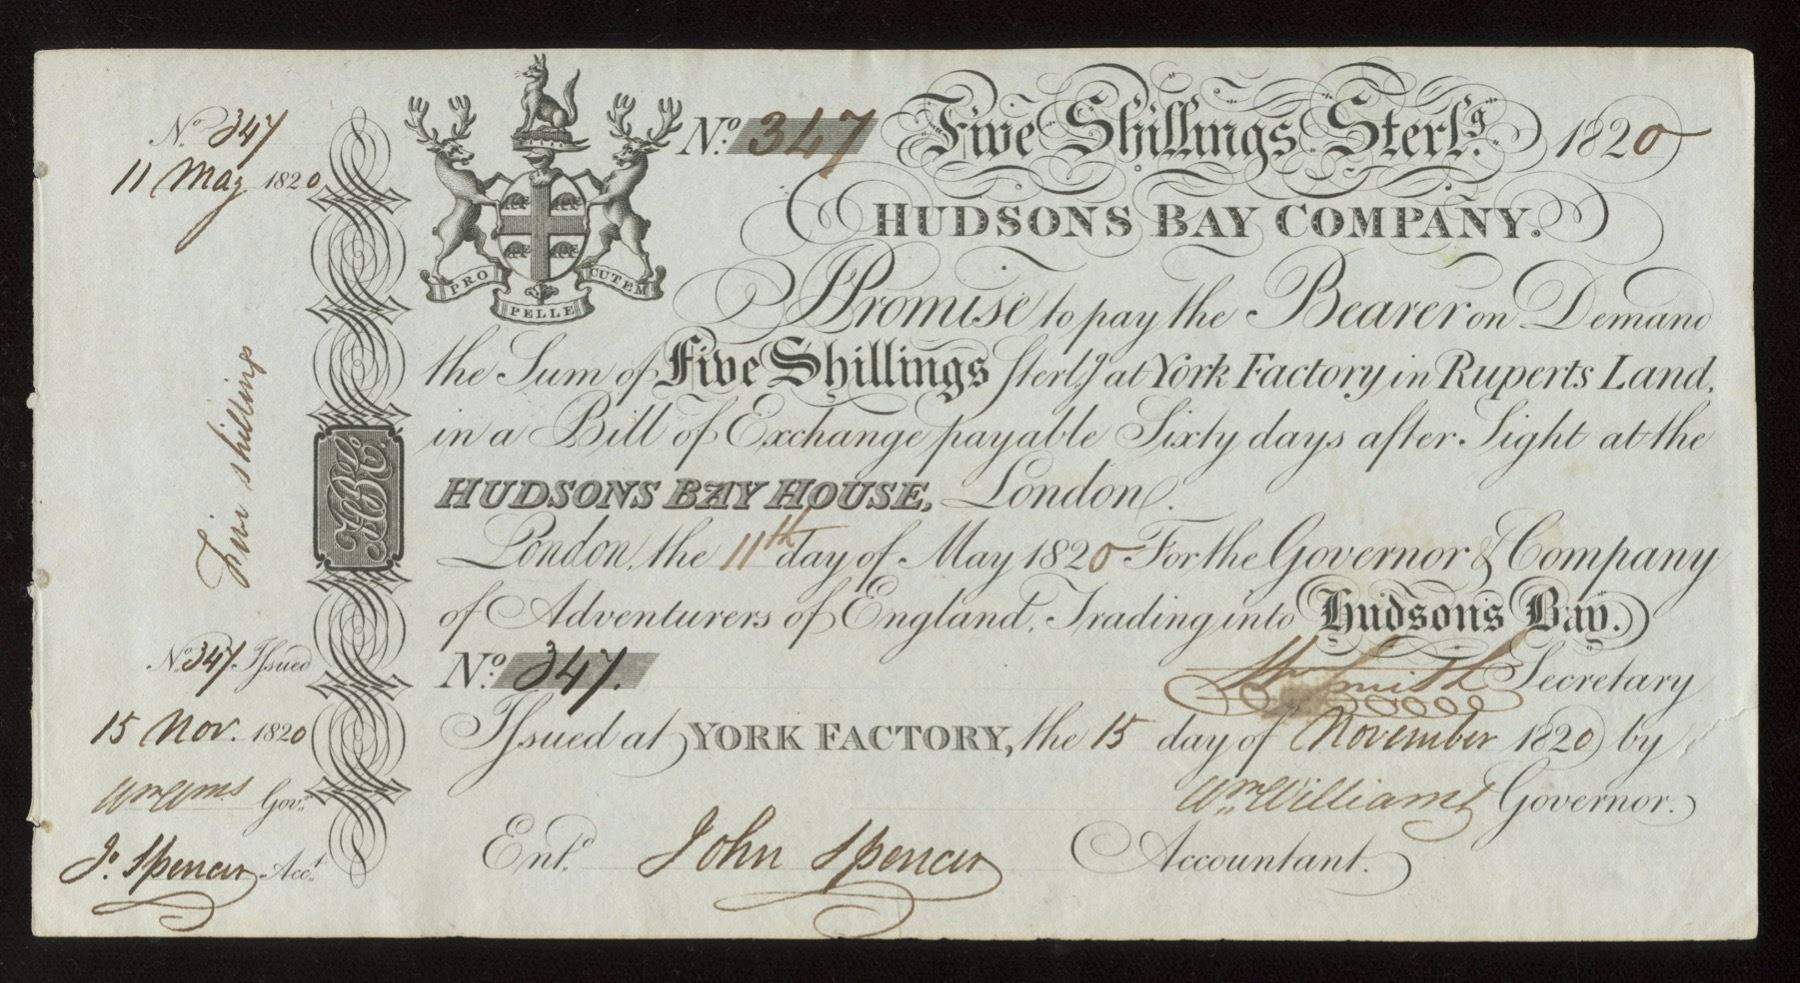 No. 347
11 May 1820
Five shillings
No. 347. Issued
15 Nov. 1820
Wm Wms Govr.
Jo. Spencer Acct.
HBC
PRO PELLE CUTEM
No. 347 Five Shillings Sterlg. 1820
HUDSONS BAY COMPANY.
I Promise to pay the Bearer on Demand
the Sum of Five Shillings Sterlg. at York Factory in Ruperts Land,
in a Bill of Exchange payable Sixty days after Sight at the
HUDSONS BAY HOUSE, London.
London, the 11th day of May 1820 For the Governor & Company
of Adventurers of England, Trading into Hudson's Bay.
No. 347. Wm Smith Secretary
Issued at YORK FACTORY, the 15 day of November 1820 by
Wm. Williams Governor.
Entd. John Spencer Accountant.